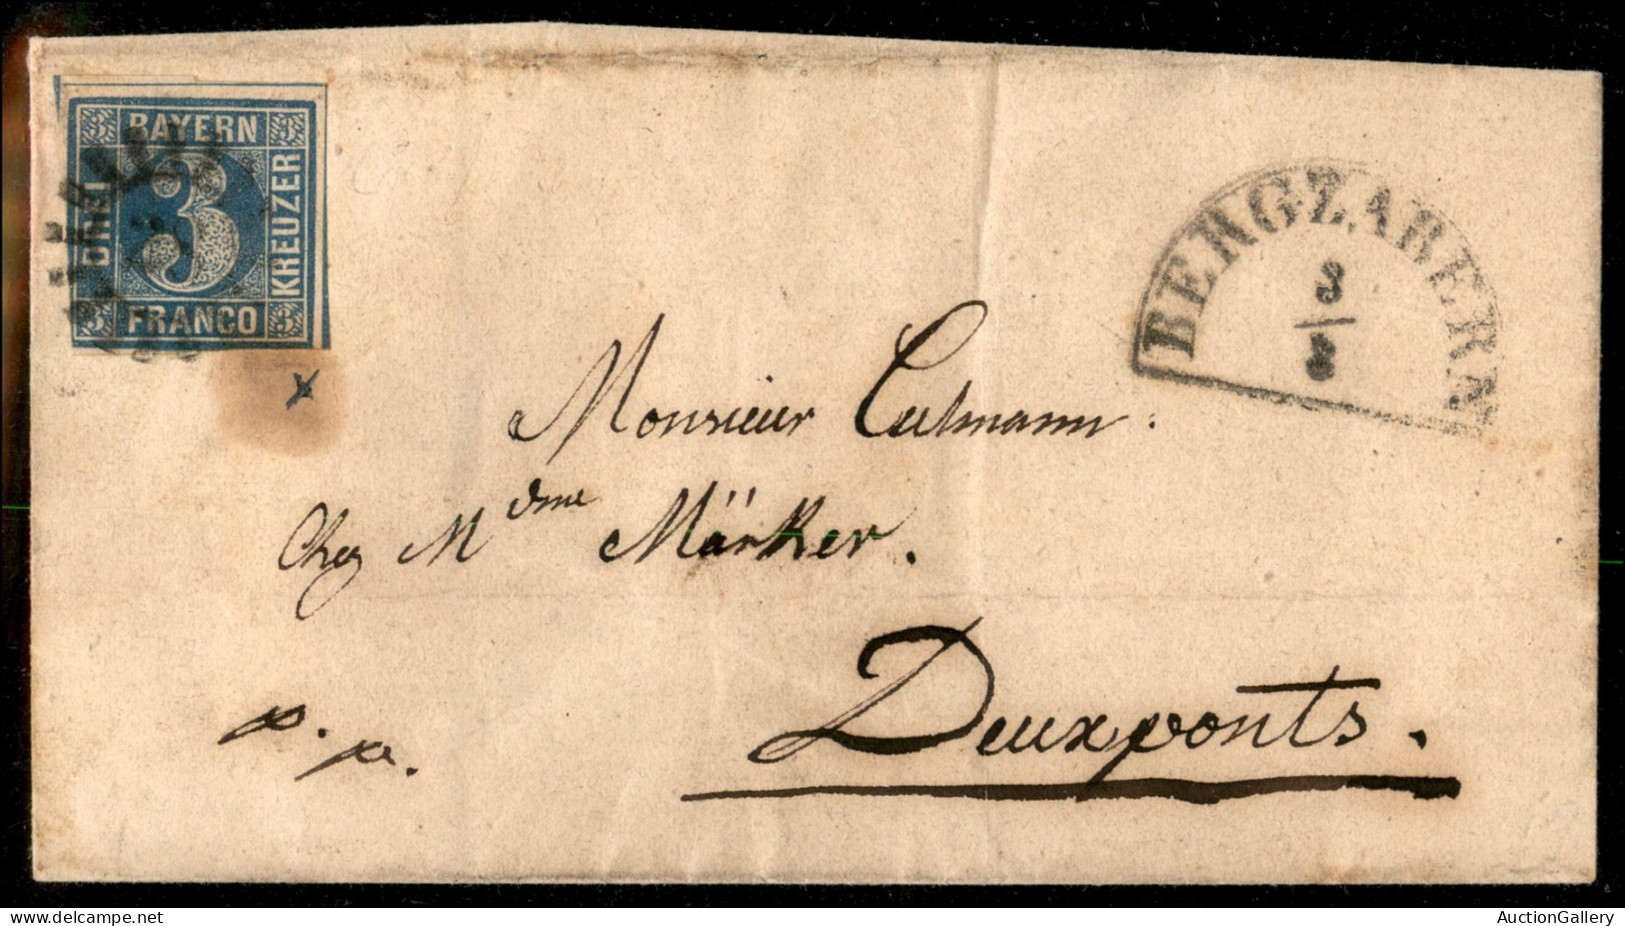 BAYERN
3 3
DREI 3 KREUZER
3 FRANCO 3
BERGZABERN
3
8
Monsieur Culmann.
Chez Mdme Märker.
Deuxponts.
p. p.
AuctionGallery